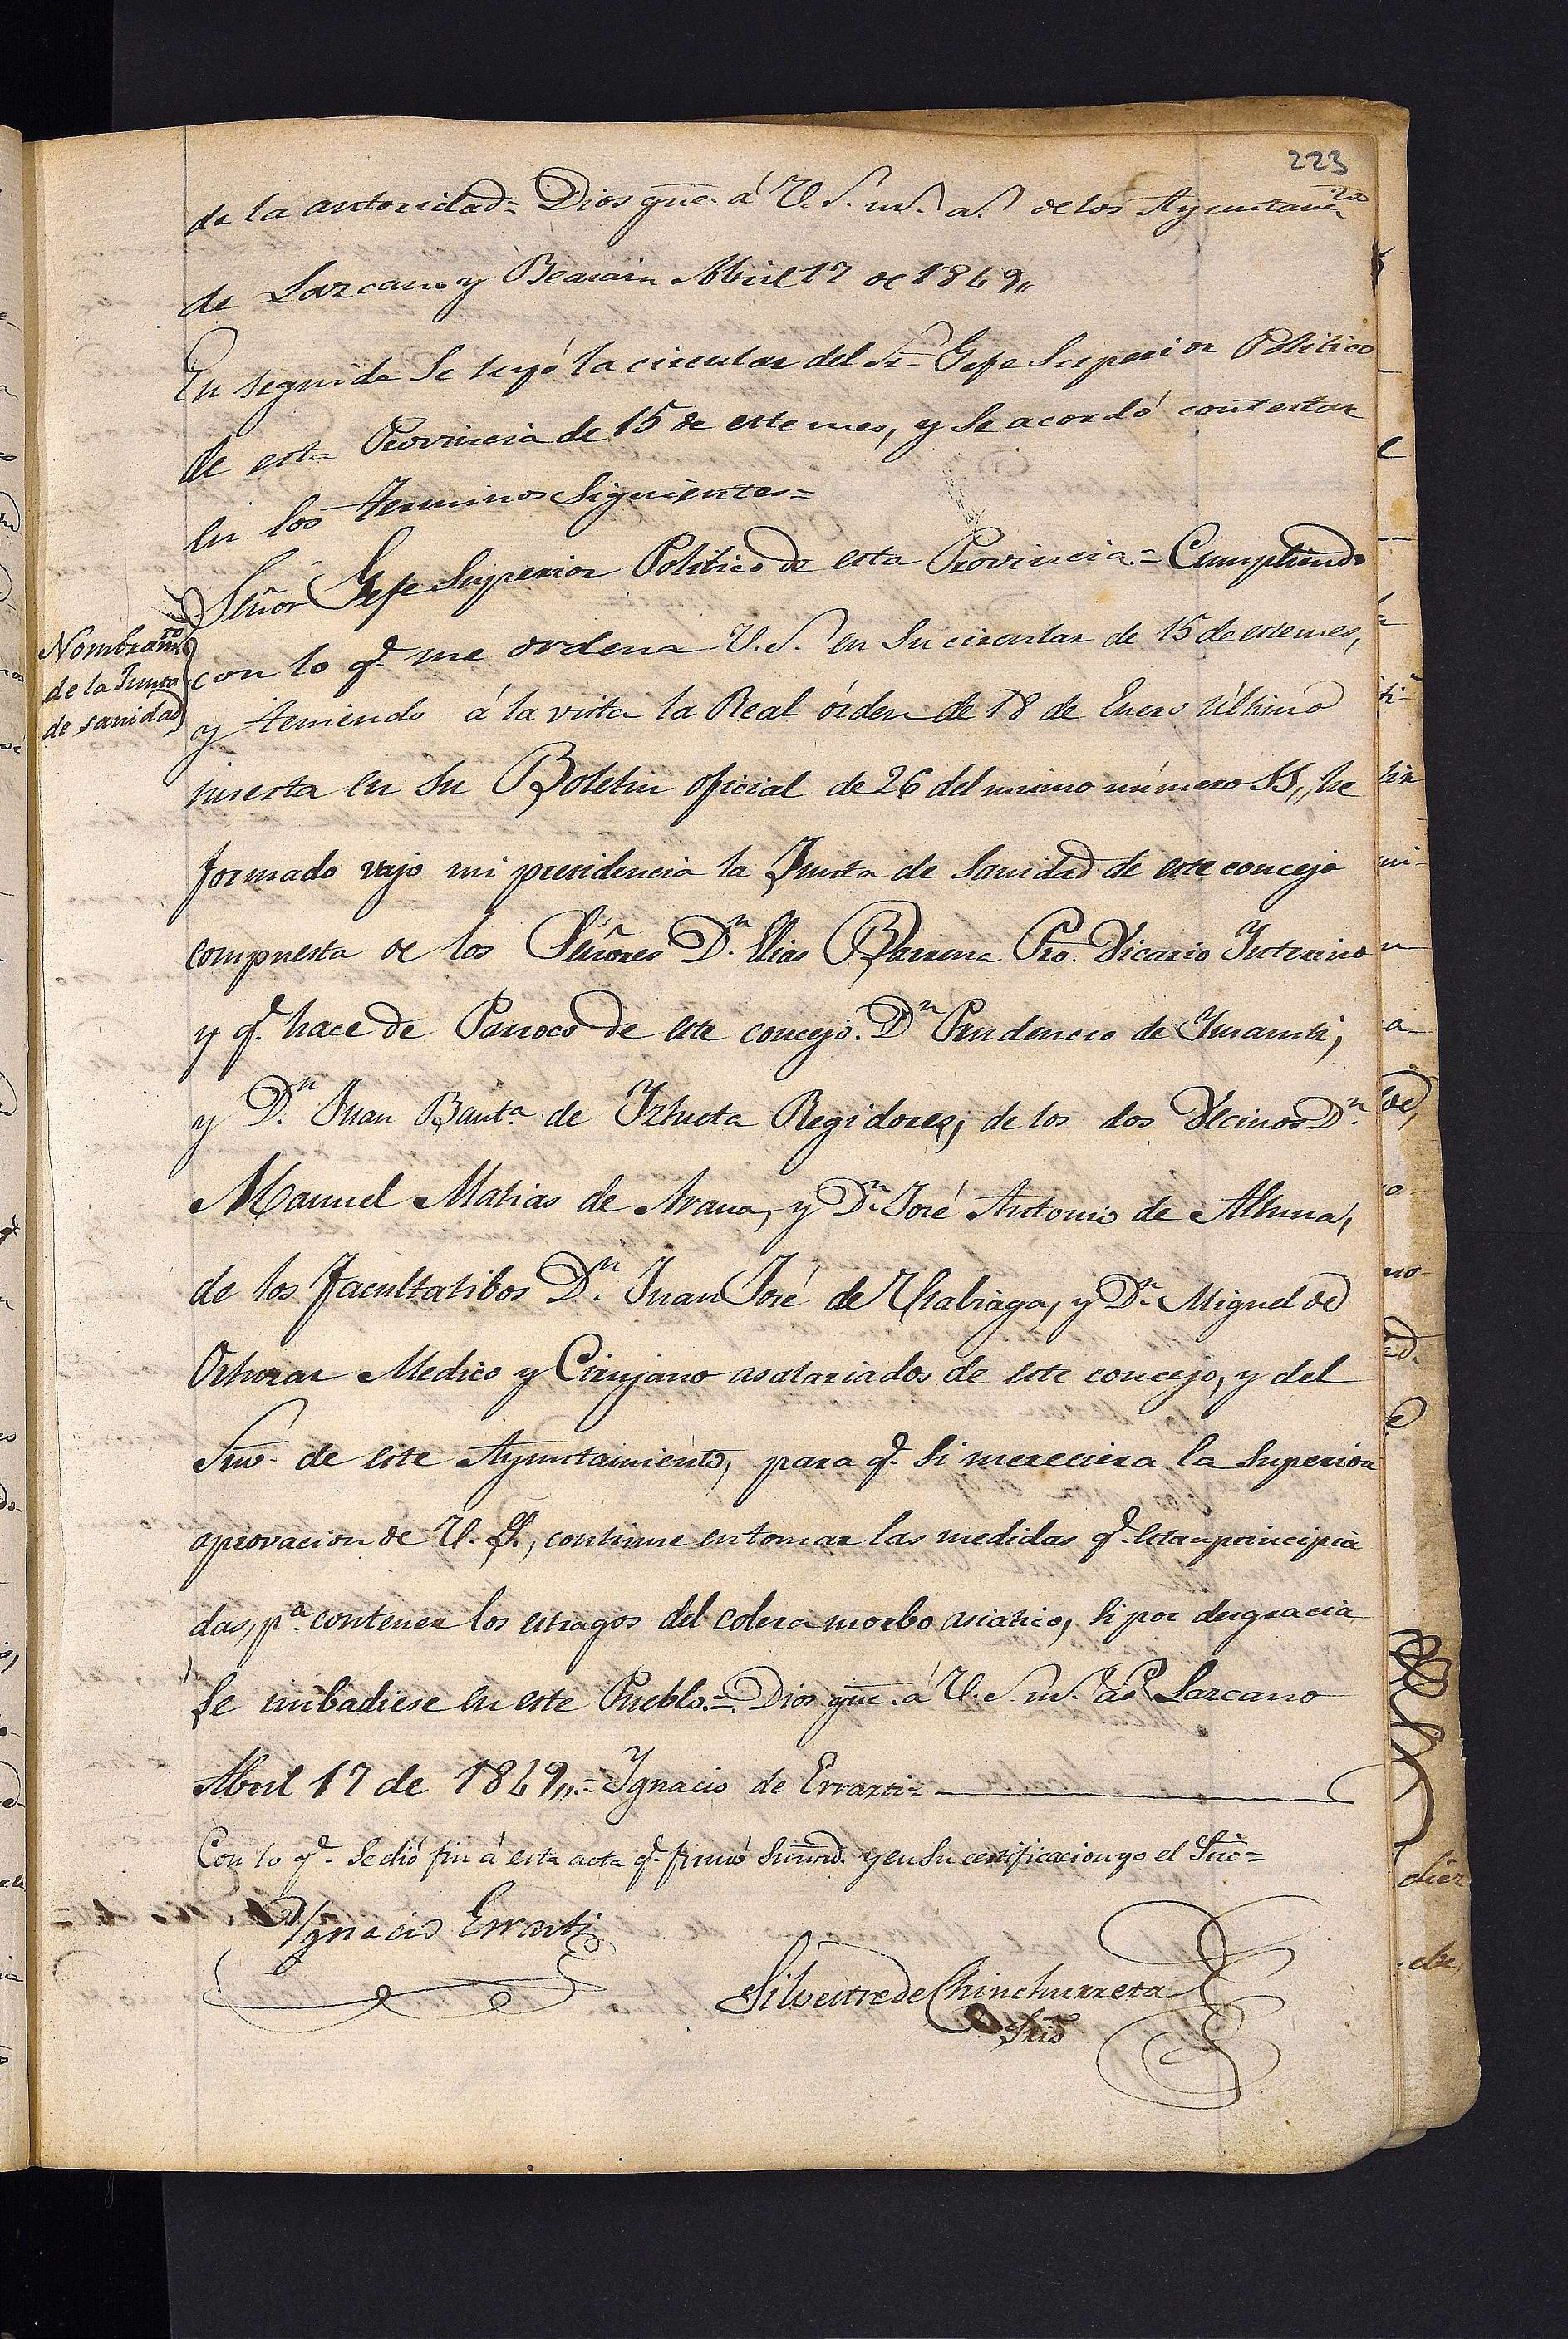 223
de la autoridad = Dios gue. á V. S. m.s a.s de los Ayuntam.tos
de Lazcano y Beasain Abril 17 de 1849,,
En seguida se leyó la circular del Sr. Gefe Superior Politico
de esta Provincia de 15 de este mes, y se acordó contestar
en los terminos siguientes =
Nombram.to
de la Junta
de sanidad
Señor Gefe Superior Politico de esta Provincia. = Cumpliendo
con lo q.e me ordena V. S. en su circular de 15 de este mes,
y teniendo á la vista la Real órden de 18 de Enero último
inserta en su Boletin oficial de 26 del mismo número 11,, he
formado vajo mi presidencia la Junta de Sanidad de este concejo
compuesta de los Señores D.n Elias Barrena Pro. Vicario Interino
y q.e hace de Parroco de este concejo. D.n Prudencio de
y D.n Juan Baut.a de Iztueta Regidores; de los dos Vecinos D.n
Manuel Matias de Arana, y D.n José Antonio de Altuna,
de los facultatibos D.n Juan José de y D.n Miguel de
Ortuzar Medico y Cirujano asalariados de este concejo, y del
Srio. de este Ayuntamiento, para q.e si mereciera la superior
aprovacion de V. S., continue en tomar las medidas q.e estan principia
das, p.a contener los estragos del colera morbo asiatico, si por desgracia
se imbadiese en este Pueblo. = Dios gue. á V. S. m.s a.s Lazcano
Abril 17 de 1849,,. = Ygnacio de Errazti =
Con lo q.e se dió fin á esta acta q.e firmó sumrd. y en su certificacion yo el Srio =
Ygnacio Errazti
Silvestre de Chinchurreta
Srio